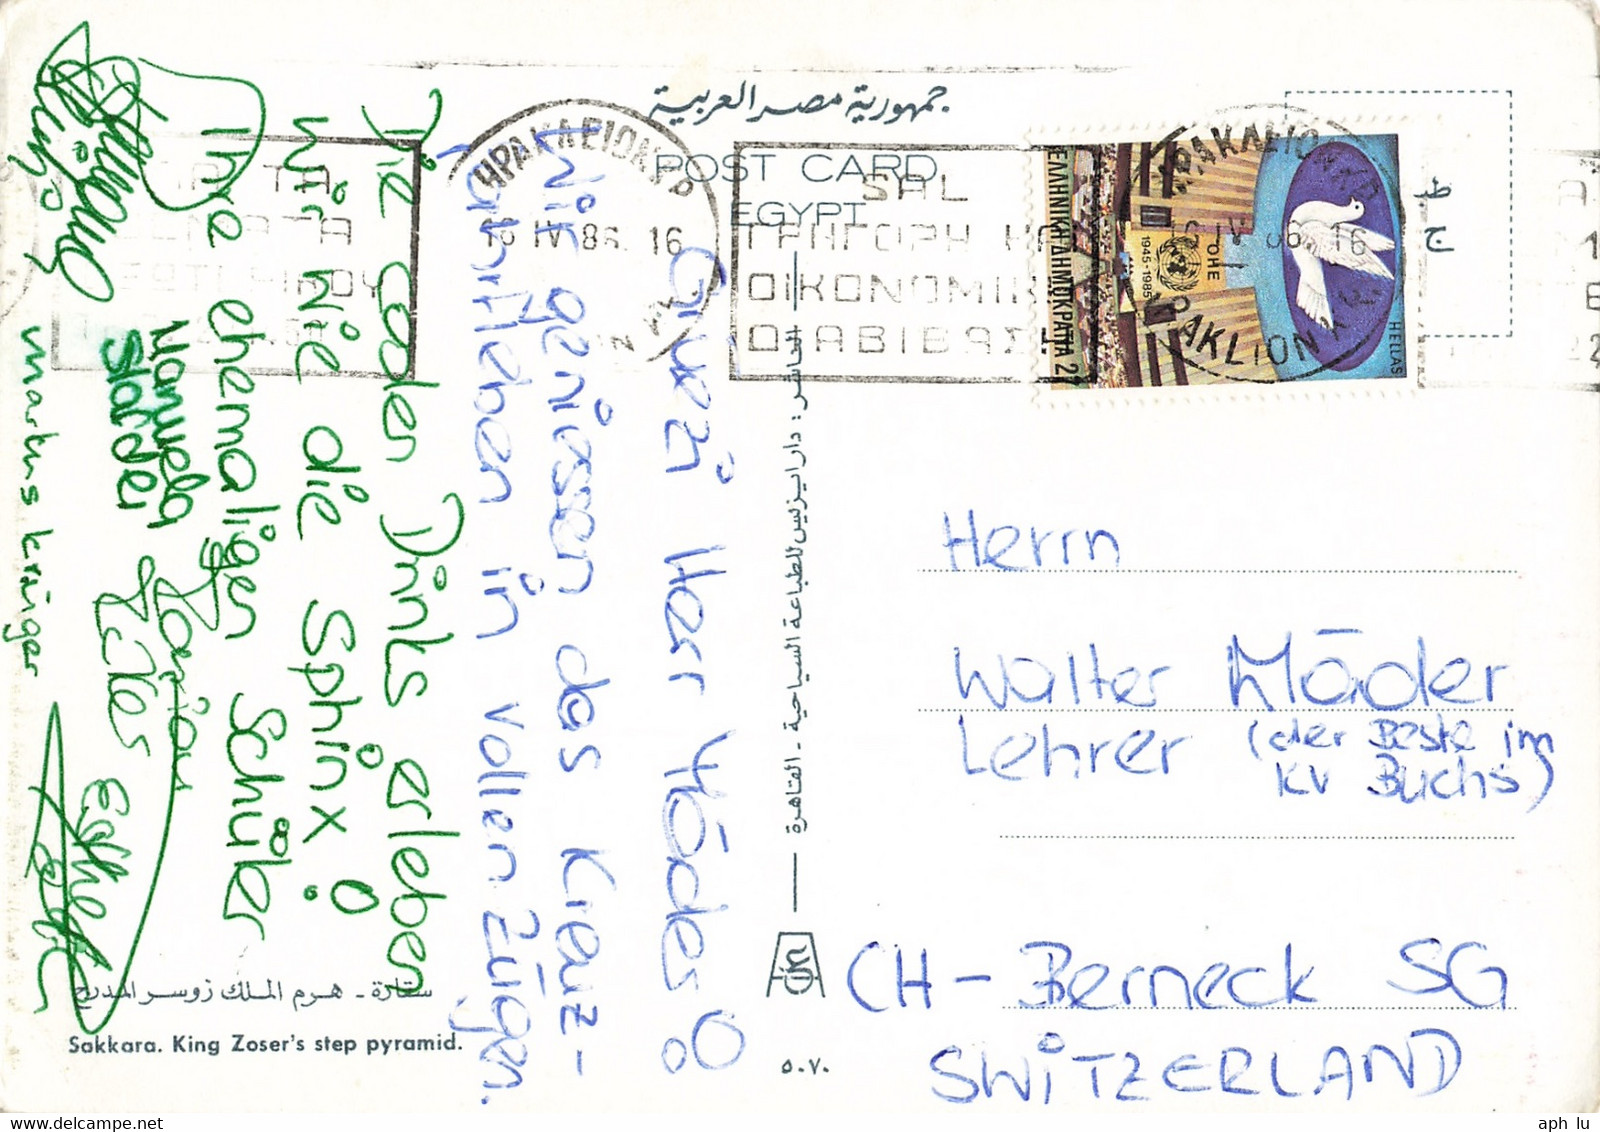 جمهورية مصر العربية
POST CARD
EGYPT
ΗΡΑΚΛΕΙΟΝ Κ Ρ
16 IV 86. 16
SAL
ΓΡΗΓΟΡΗ ΚΑΙ
ΟΙΚΟΝΟΜΙΚ
ΔΙΑΒΙΒΑΣ
ΕΛΛΗΝΙΚΗ ΔΗΜΟΚΡΑΤΙΑ 27
ΟΗΕ
1945-1985
HELLAS
ΗΡΑΚΛΕΙΟΝ ΚΡ
IV 86 16
IRAKLION
ط
ج
Grüezi Herr Mäder!
Wir geniessen das Kreuz-
fahrtleben in vollen Zügen.
Die coolen Drinks erleben
wir wie die Sphinx!
Ihre ehemaligen Schüler
Manuela
Stalder
markus krüger
Esther
Herrn
Walter Mäder
Lehrer (der Beste im
KV Buchs)
CH - Berneck SG
SWITZERLAND
الناشر: دار ايزيس للطباعة السياحية - القاهرة
٥٠٧٠
سقارة - هرم الملك زوسر المدرج
Sakkara. King Zoser's step pyramid.
aph lu